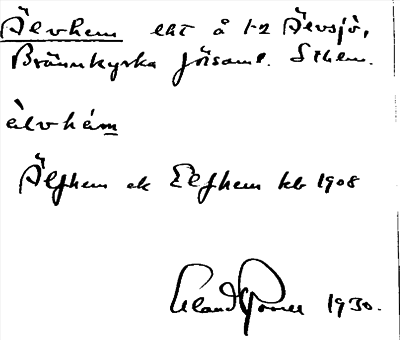 Älvhem lht å 1-2 Älvsjö,
Brännkyrka församl. Sthlm.
älvhém
Älfhem ek Elfhem kb 1908
1930.